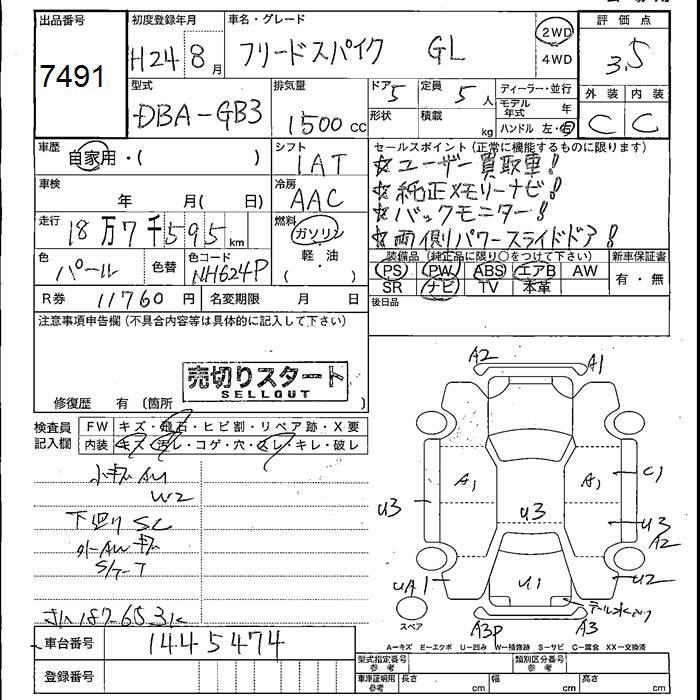 出品番号
7491
初度登録年月
H24 8月
車名・グレード
フリードスパイク GL
2WD
4WD
評価点
3.5
外装 内装
C C
型式
DBA-GB3
排気量
1500cc
ドア 5
定員 5人
形状
積載 kg
ディーラー・並行
モデル年式 年
ハンドル 左・右
車歴
自家用・( )
シフト
1AT
セールスポイント(正常に機能するものに限ります)
☆ユーザー買取車!
☆純正メモリーナビ!
☆バックモニター!
☆両側パワースライドドア!
車検
年 月( 日)
冷房
AAC
走行
18万7千595km
燃料
ガソリン
軽・油
( )
色
パール
色替
色コード
NH624P
装備品(純正品に限り○をつけて下さい)
PS PW ABS エアB AW
SR ナビ TV 本革
新車保証書
有・無
R券 11760円
名変期限 月 日
後日品
注意事項申告欄(不具合内容等は具体的に記入して下さい)
売切りスタート
SELLOUT
修復歴 有(箇所 )
検査員記入欄
FW キズ・飛石・ヒビ割・リペア跡・X要
内装 キズ・汚レ・コゲ・穴・スレ・キレ・破レ
小キズ AU
W2
下廻り SC
S/T-T
187653k
A2 A1
A1 A1 C1
U3 U3 U3
A2
UA1 U1 U2
スペア
A3P A3
A-キズ E-エクボ U-凹み W-補修跡 S-サビ C-腐食 XX-交換済
車台番号 1445474
登録番号
型式指定番号 参考
類別区分番号 参考
車庫証明用 参考
長さ cm 幅 cm 高さ cm